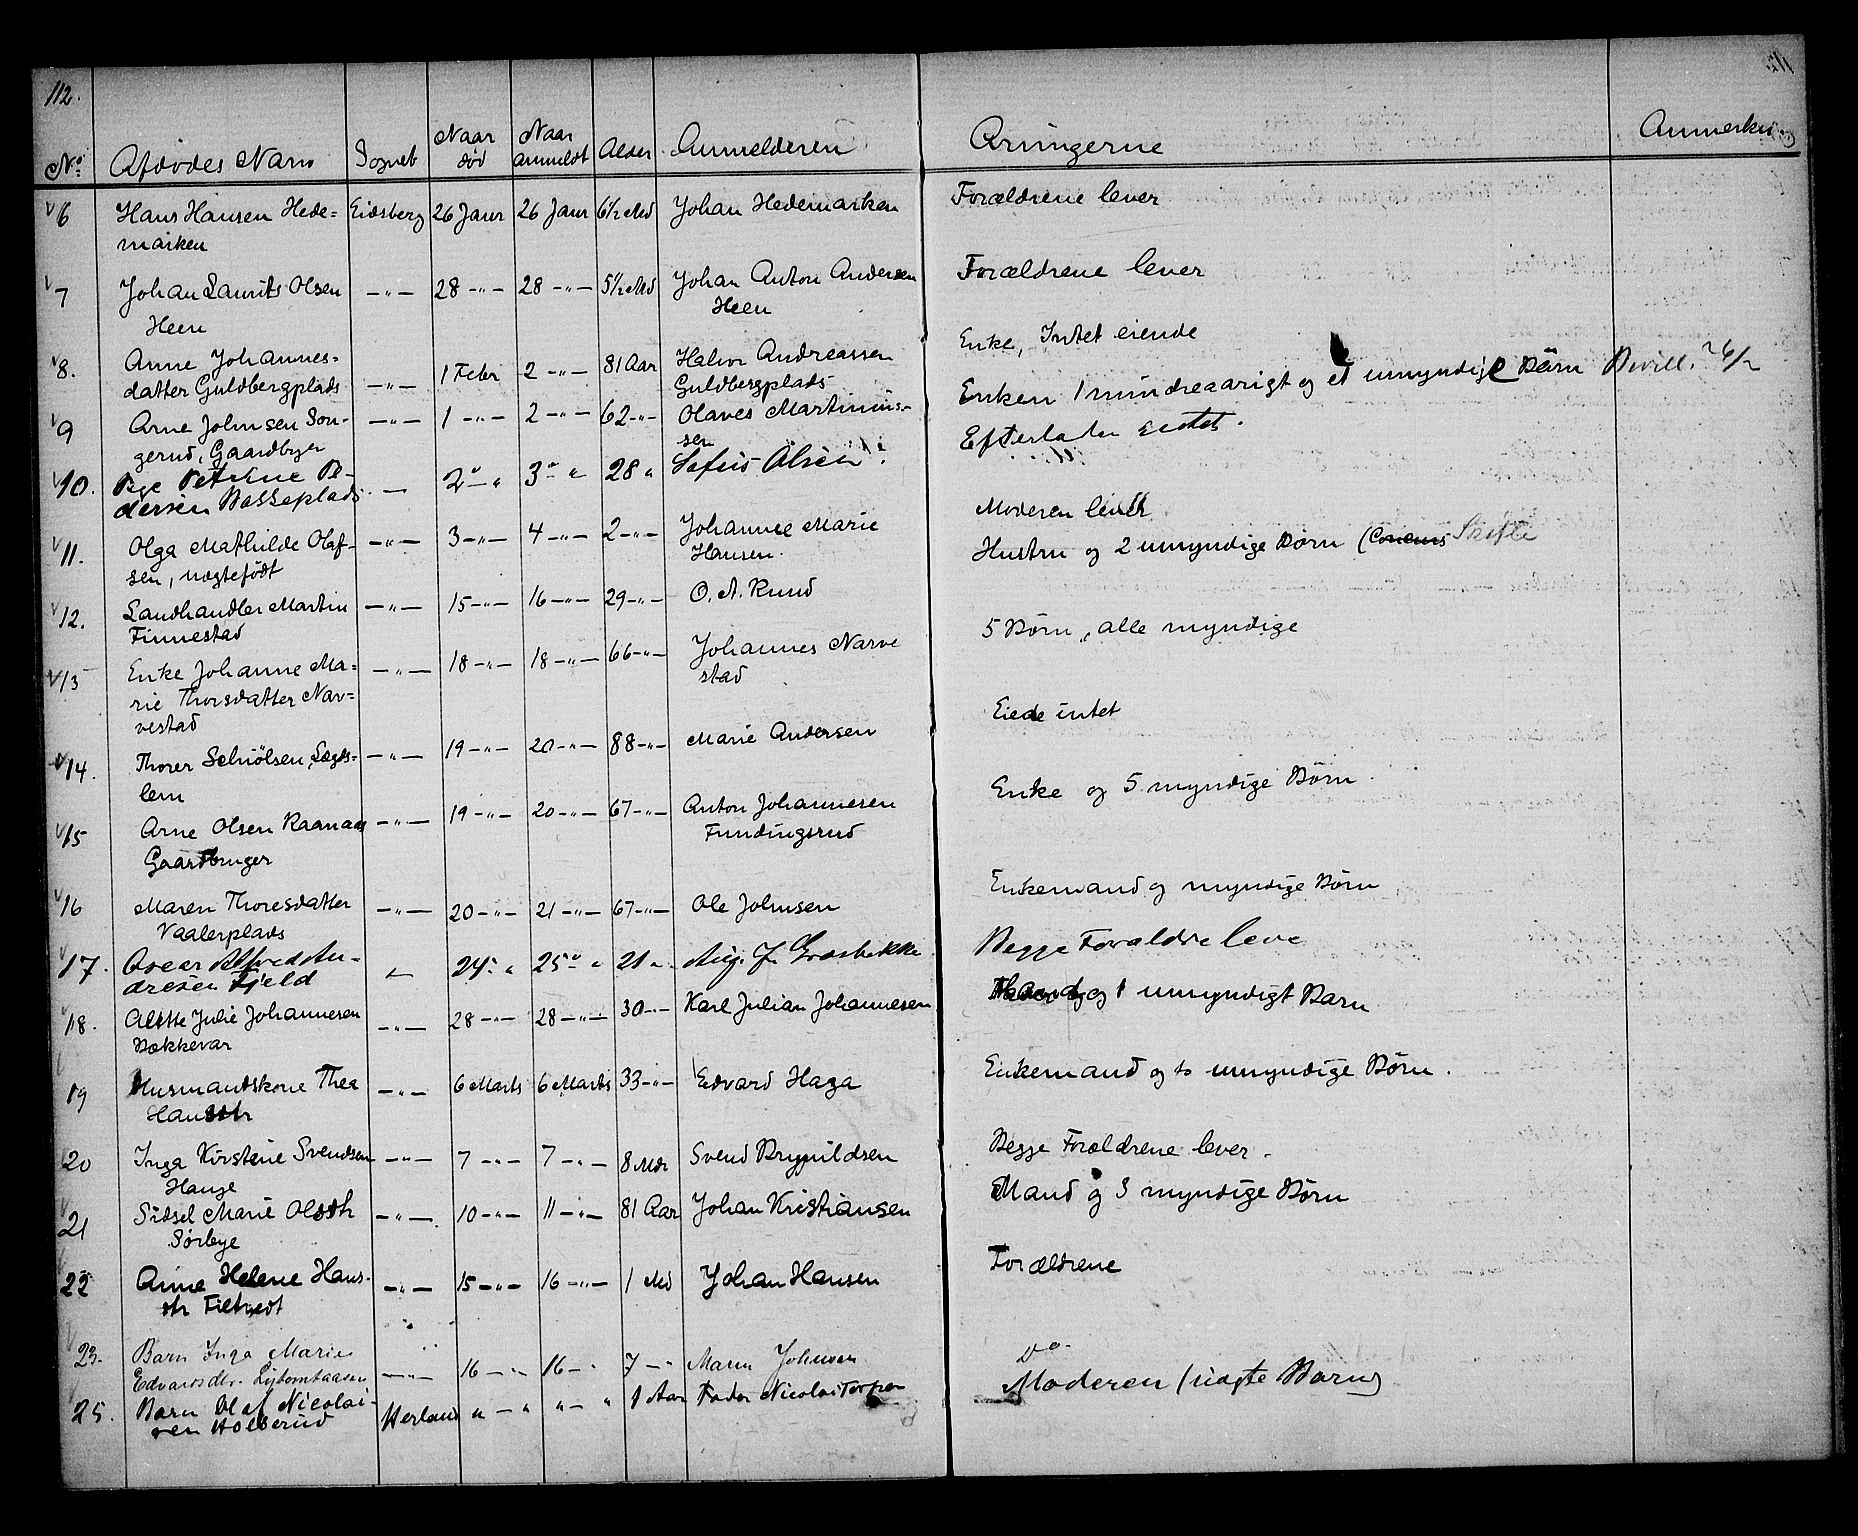 112.
No. Afdødes Navn Sognet Naar død Naar anmeldt Alder Anmelderen Arvingerne Anmerkn.
6 Hans Hansen Hede= Eidsberg 26 Janr 26 Janr 6½ Md Johan Hedemarken Forældrene lever
marken
7 Johan Laurits Olsen —„— 28 —„— 28 —„— 5½ Md Johan Anton Andersen Forældrene lever
Heen Heen
8. Anne Johannes= —„— 1 Febr 2 —„— 81 Aar Halvor Andreassen Enke, Intet eiende
datter Guldbergplads Guldbergplads
9 Arne Johnsen Son- —„— 1 —„— 2 —„— 62 —„— Olaves Martinius- Enken 1 mindreaarigt og et umyndige Børn Bevill. 26/2
gerud, Gaardbrger sen
10. Pige Petrine Pe- — 2 — „ 3 — „ 28 „ Sefus Olsen Efterlader intet.
dersen Basseplads
11. Olga Mathilde Olaf- —„— 3 —„— 4 —„— 2 —„— Johanne Marie Moderen lever
sen, uægtefødt Hansen.
12. Landhandler Martin —„— 15 —„— 16 —„— 29 —„— O. A. Ruud Hustru og 2 umyndige Børn (Concurs Skifte
Finnestad
13 Enke Johanne Ma- —„— 18 —„— 18 —„— 66 —„— Johannes Narve 5 Børn, alle myndige
rie Thorsdatter Nar= stad
vestad
14. Thorer Schiølsen, Lægds- —„— 19 —„— 20 —„— 88 —„— Marie Andersen Eiede intet
lem
15 Arne Olsen Raanaas —„— 19 —„— 20 —„— 67 —„— Anton Johannesen Enke og 5 myndige Børn.
Gaardbruger Fundingsrud
16 Maren Thoresdatter —„— 20 —„— 21 —„— 67 —„— Ole Johnsen Enkemand og myndige Børn
Vaalerplads
17. Oscar Alfred An- „ 24 „ 25 „ 21 „ Aug. J. Grosbekke Begge Forældre leve
dresen Fjeld
18. Alette Julie Johannesen —„— 28 —„— 28 —„— 30 —„— Karl Julian Johannesen og 1 umyndigt Barn
Bækkevar
19 Husmandskone Thea —„— 6 Marts 6 Marts 33 —„— Edvard Haga Enkemand og to umyndige Børn.
Hansdtr
20 Inga Kirstine Svendsen —„— 7 —„— 7 —„— 8 Mdr Svend Brynildsen Begge Forældrene lever.
Hauge
21 Sidsel Marie Olsdtr —„— 10 —„— 11 —„— 81 Aar Johan Kristiansen Mand og 3 myndige Børn
Sørbye
22 Anne Helene Hans- —„— 15 —„— 16 —„— 1 Md Johan Hansen Forældrene
dtr Filtvedt
23. Barn Inga Marie —„— 16 —„— 16 —„ 7 —„ Maren Johnsen Do.
Edvardsdtr.
25. Barn Olaf Nicolai- Herland „ — „ „ — „ 1 Aar Fader Nicolai Torper Moderen (uægte Barn)
sen Holserud